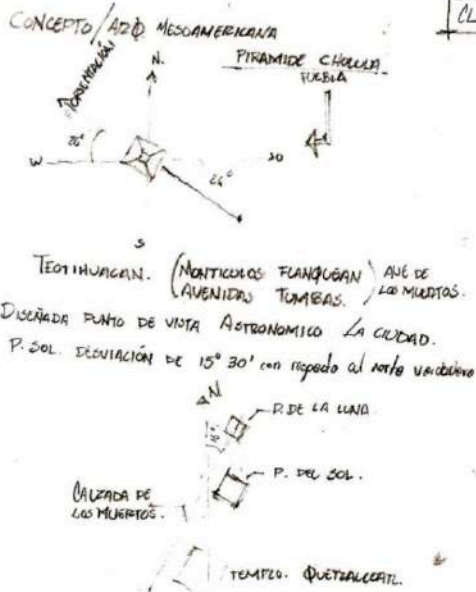 CL
CONCEPTO/AZO MESOAMERICANA
N.
PIRAMIDE CHOLULA
PUEBLA
ORIENTACION
26°
W
26°
S
TEOTIHUACAN. (MONTICULOS FLANQUEAN AVENIDAS TUMBAS.) AVE DE LOS MUERTOS.
DISEÑADA PUNTO DE VISTA ASTRONOMICO LA CIUDAD.
P. SOL. DESVIACIÓN DE 15° 30' con respecto al norte verdadero
N
P. DE LA LUNA
P. DEL SOL.
CALZADA DE
LOS MUERTOS.
TEMPLO. QUETZALCOATL.